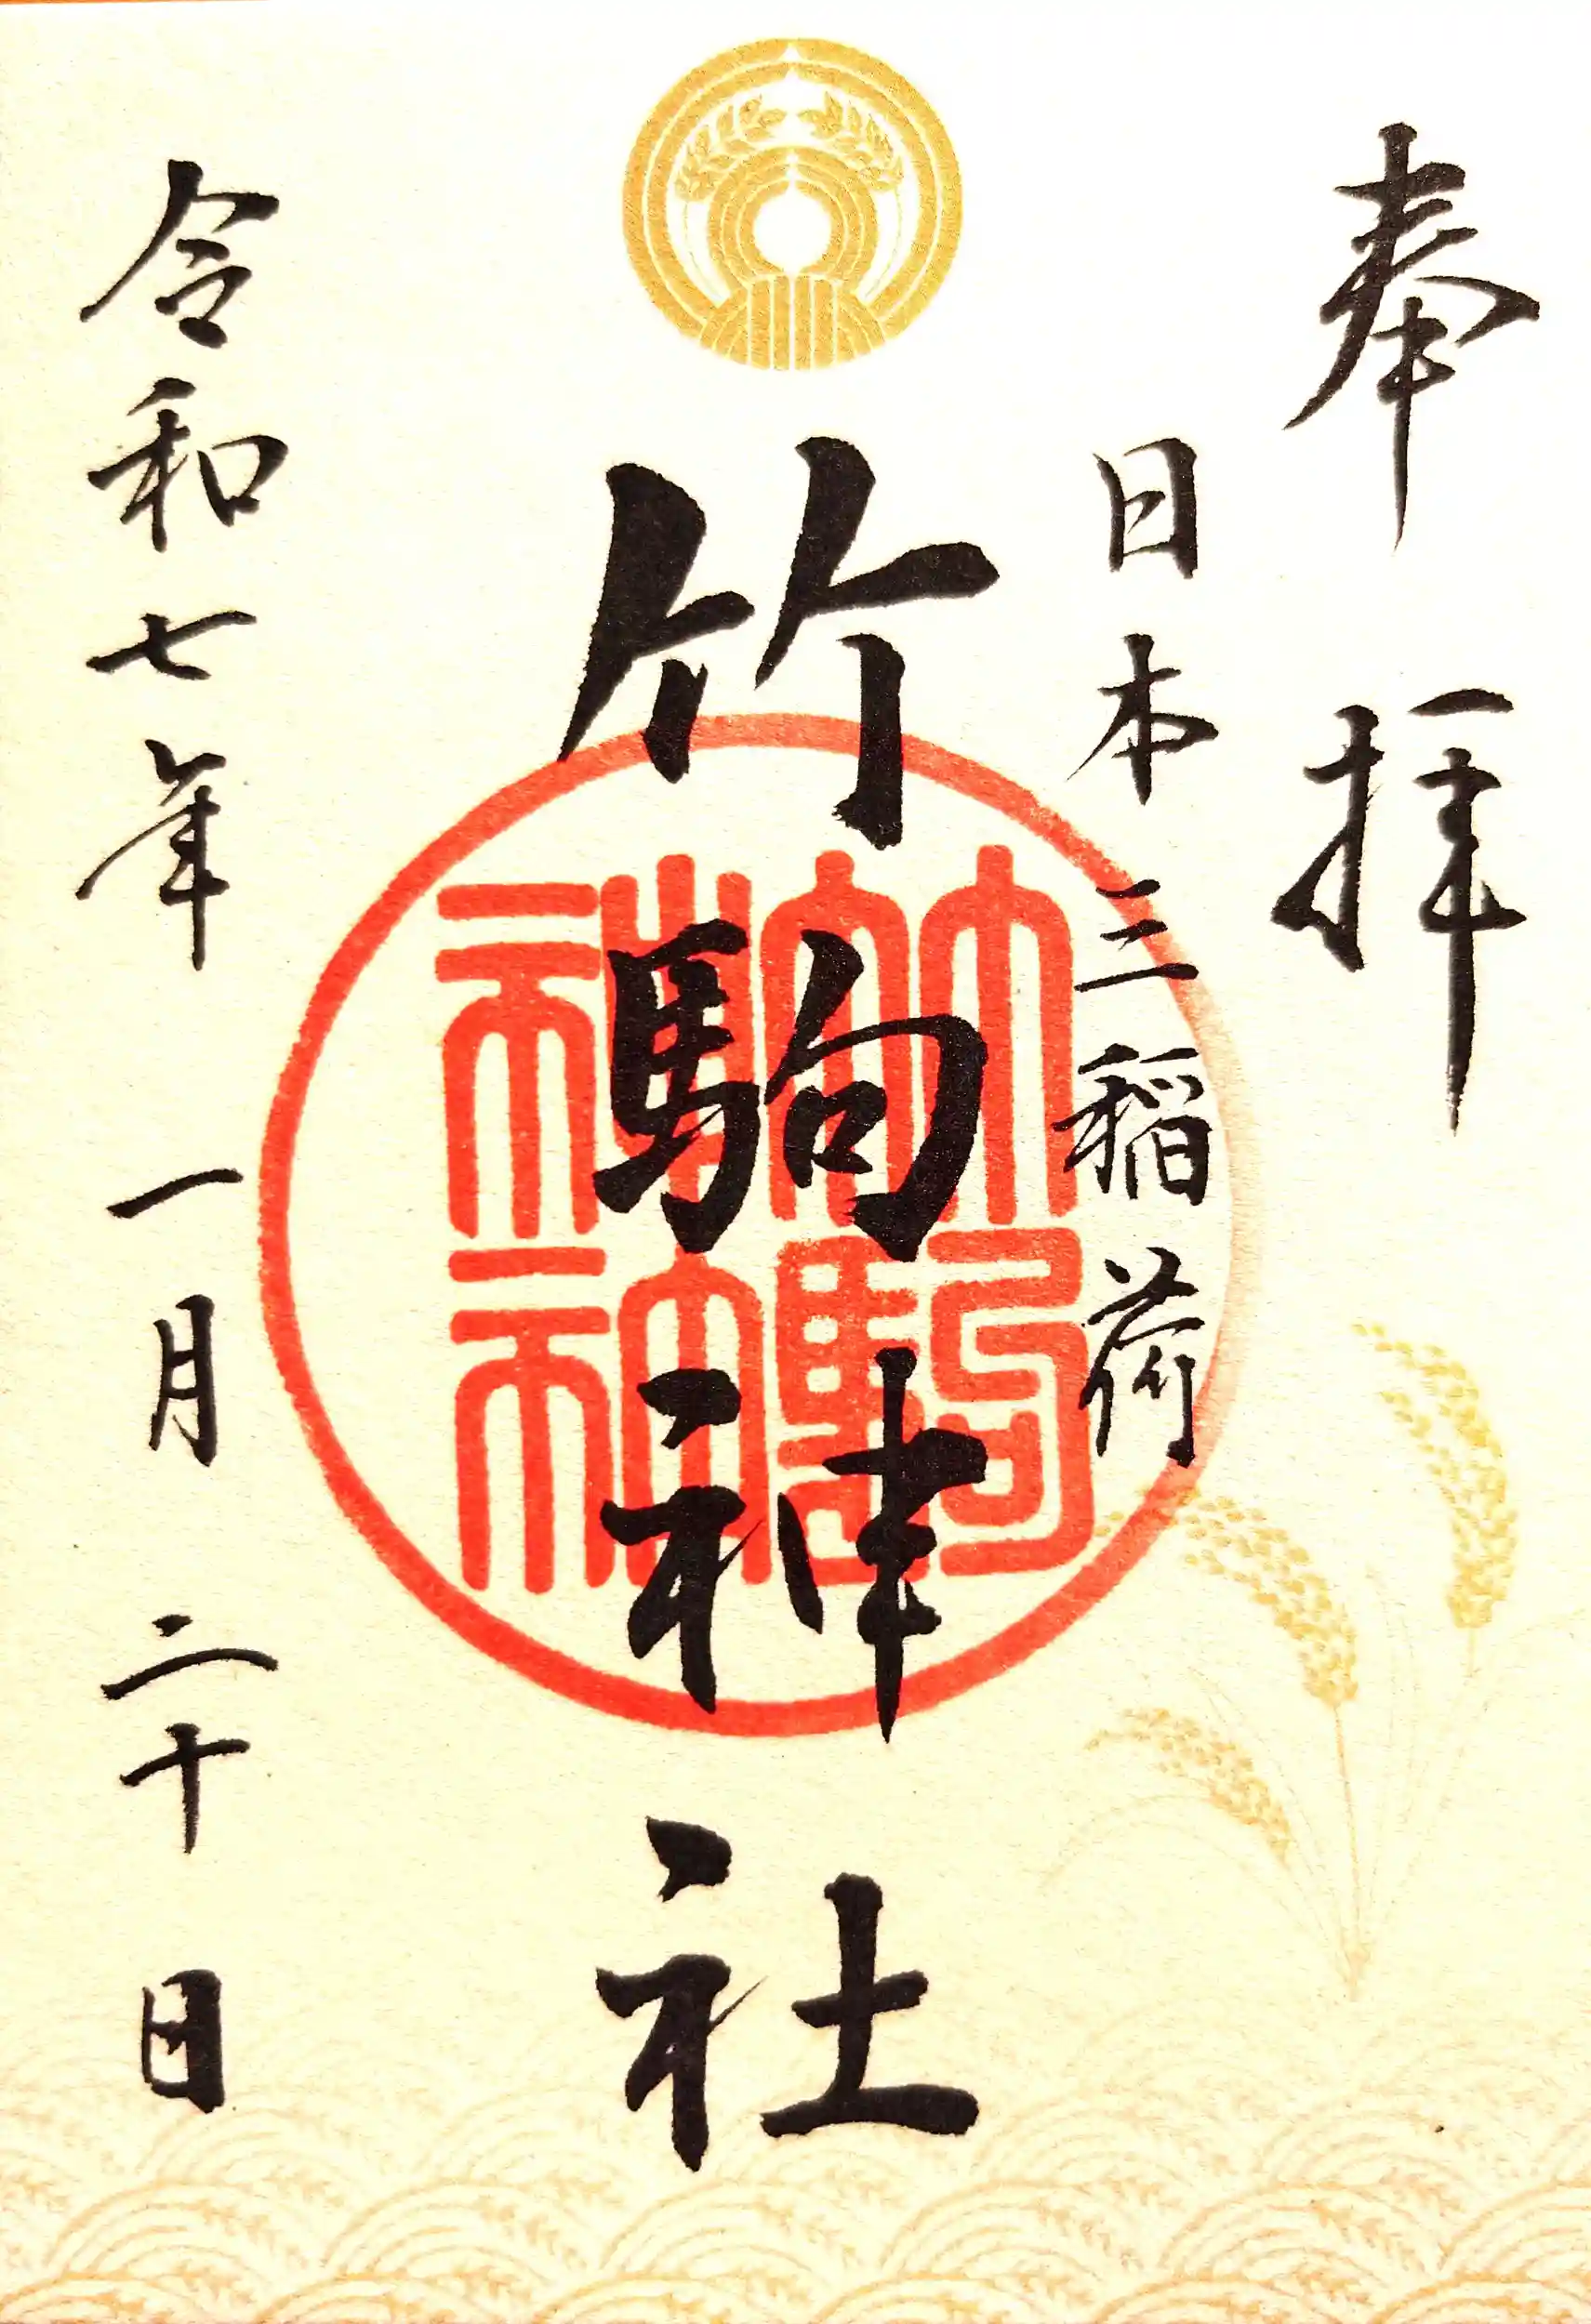 奉拝
日本三稲荷
竹駒神社
竹駒
神社
令和七年一月二十日